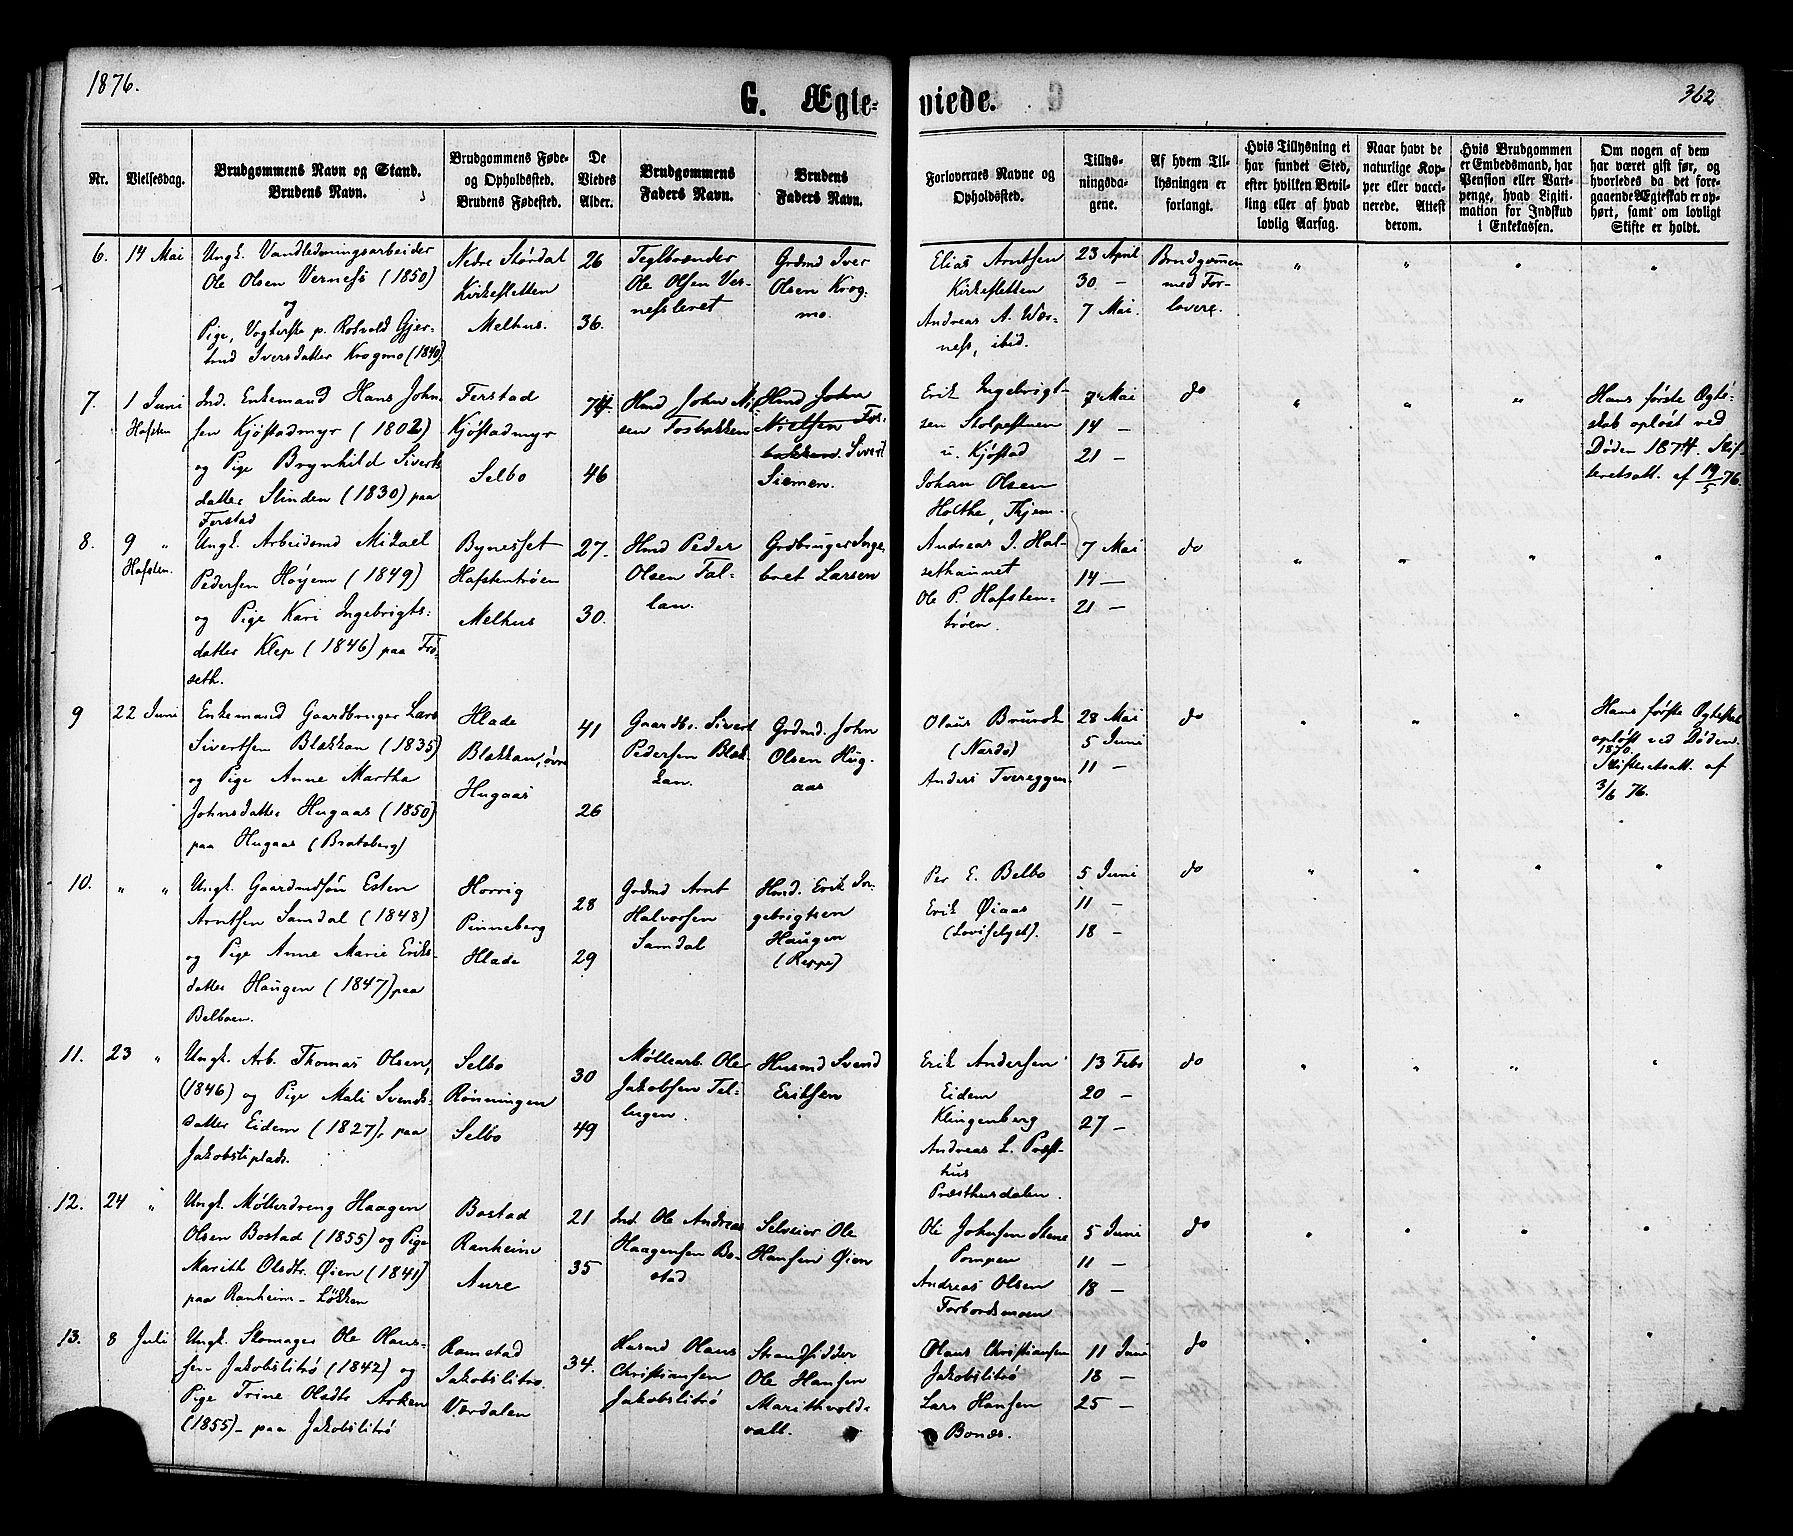 1876.
G. Ægte-
viede.
362
Nr.
Vielsesdag.
Brudgommens Navn og Stand.
Brudens Navn.
Brudgommens Føde-
og Opholdssted.
Brudens Fødested.
De
Viedes
Alder.
Brudgommens
Faders Navn.
Brudens
Faders Navn.
Forlovernes Navne og
Opholdssted.
Tillys-
ningsda-
gene.
Af hvem Til-
lysningen er
forlangt.
Hvis Tillysning ei
har fundet Sted,
efter hvilken Bevil-
ling eller af hvad
lovlig Aarsag.
Naar havt de
naturlige Kop-
per eller vacci-
nerede. Attest
derom.
Hvis Brudgommen
er Embedsmand, har
Pension eller Vart-
penge, hvad Ligiti-
mation for Indskud
i Enkekassen.
Om nogen af dem
har været gift før, og
hvorledes da det fore-
gaaende Ægteskab er op-
hørt, samt om lovligt
Skifte er holdt.
6.
14 Mai
Ungk. Vandledningsarbeider
Ole Olsen Verness (1850)
og
Pige, Vogterske p. Rotvold Gjer-
trud Iversdatter Krogmo (1840)
Nedre Stördal
Kirkesletten
Melhus.
26
36.
Teglbrænder
Ole Olsen Ver-
nesslevet
Grdmd Iver
Olsen Krog-
mo.
Elias Arntsen
Kirkesletten
Andreas A. Wær-
ness, ibid.
23 April
30. —
7 Mai.
Brudgommen
med For-
lovere.
" " " "
7.
1 Juni
Hafsten
Ind. Enkemand Hans John-
sen Kjöstadmyr (1802)
og Pige Brynhild Siverts
datter Slinden (1830) paa
Ferstad
Ferstad
Kjöstadmyr
Selbo
74
46
Hmd John Ni-
sen Fosbakken
Hmd John
Nielsen Fos-
bakken. Sivert
Siemen.
Erik Ingebrigt-
sen Stolpestuen
u. Kjöstad
Johan Olsen
Holthe, Thjem.
7 Mai
14 —
21 —
do
" " "
Hans første Ægte-
skab opløst ved
Døden 1874. Skif-
teretsatt. af 19/5 76.
8.
9 "
Hafsten.
Ungk. Arbeidsmd Mikael
Pedersen Höyem (1849)
og Pige Kari Ingebrigts-
datter Klep (1846) paa Frö-
seth.
Bynesset
Hafstentröen
Melhus
27.
30.
Hmd Peder
Olsen Tal-
lan.
Grdbruger Inge
bret Larsen
Andreas J. Hal-
sethaunet
Ole P. Hafsten-
tröen.
7 Mai
14 —
21 —
do
" " " "
9
22 Juni
Enkemand Gaardbruger Lars
Sivertsen Blækkan (1835)
og Pige Anne Martha
Johnsdatter Hugaas (1850)
paa Hugaas (Bratsberg)
Hlade
Blækkan, övre
Hugaas
41
26
Gaardbr. Sivert
Pedersen Blæk-
kan.
Grdmd. John
Olsen Hug-
aas
Olaus Brurok
(Nardo)
Anders Tvereggen
28 Mai
5 Juni
11 —
do
" " "
Hans første Ægteskab
opløst ved Døden
1870.
Skifteretsatt. af
3/6 76.
10.
" "
Ungk. Gaardmdsön Esten
Arntsen Samdal (1848)
og Pige Anne Marie Eriks-
datter Haugen (1847) paa
Belboen.
Horrig
Pinneberg
Hlade
28
29
Grdmd Arnt
Halvorsen
Samdal
Hmd. Erik In-
gebrigtsen
Haugen
(Reppe)
Per E. Belbo
Erik Øiaas
5 Juni
11 —
18 —
do
" " " "
11.
23 "
Ungk. Arb. Thomas Olsen,
(1846) og Pige Mali Svends-
datter Eidem (1827), paa
Jakobsliplads.
Selbo
Rönningen
Selbo
30
49
Møllearb. Ole
Jakobsen Tel-
lugen.
Husmd Svend
Eriksen
Erik Andersen
Eidem
Klingenberg
Andreas L. Præst-
hus
Præsthusdalen.
13 Febr
20 —
27 —
do
" " " "
12.
24 "
Ungk. Møllerdreng Haagen
Olsen Bostad (1855) og Pige
Marith Olsdtr. Øien (1841)
paa Ranheim-Lökken
Bostad
Ranheim
Aure
21
35
Ind. Ole Andreas
Haagensen Bo-
stad
Selveier Ole
Hansen Øien
Ole Johnsen Stene
Pompen
Andreas Olsen
Forbordsmoen
5 Juni
11 —
18 —
do
" " " "
13.
8 Juli
Ungk. Skomager Ole Olaus-
sen Jakobslitrö (1842) og
Pige Trine Olsdtr Arken
(1855) - paa Jakobslitrö
Ramstad
Jakobslitrö.
Værdalen
34.
Husmd Olaus
Christiansen
Jakobslitrö
Strandsidder
Ole Hansen
Marithvold-
vald.
Olaus Christiansen
Jakobslitrö
Lars Hansen
Bonæs.
11 Juni
18 —
25 —
do
" " " "